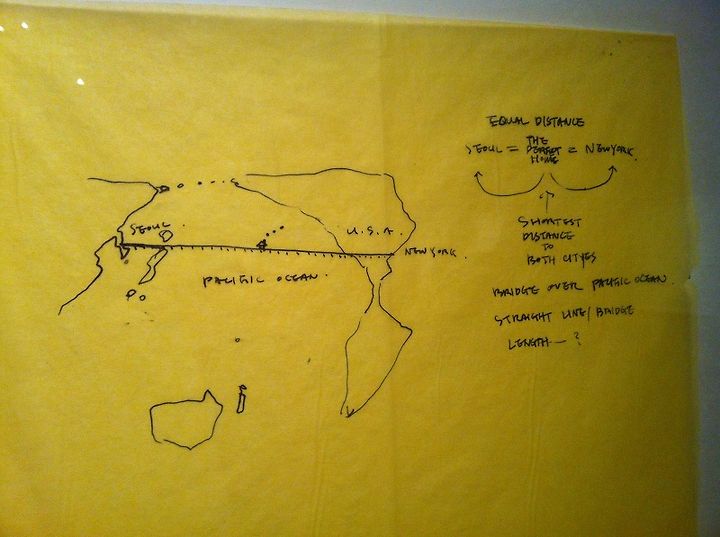 SEOUL
U.S.A.
NEW YORK.
PACIFIC OCEAN.
EQUAL DISTANCE
SEOUL = THE PERFECT HOME = NEW YORK.
SHORTEST
DISTANCE
TO
BOTH CITYES
BRIDGE OVER PACIFIC OCEAN.
STRAIGHT LINE/BRIDGE
LENGTH — ?